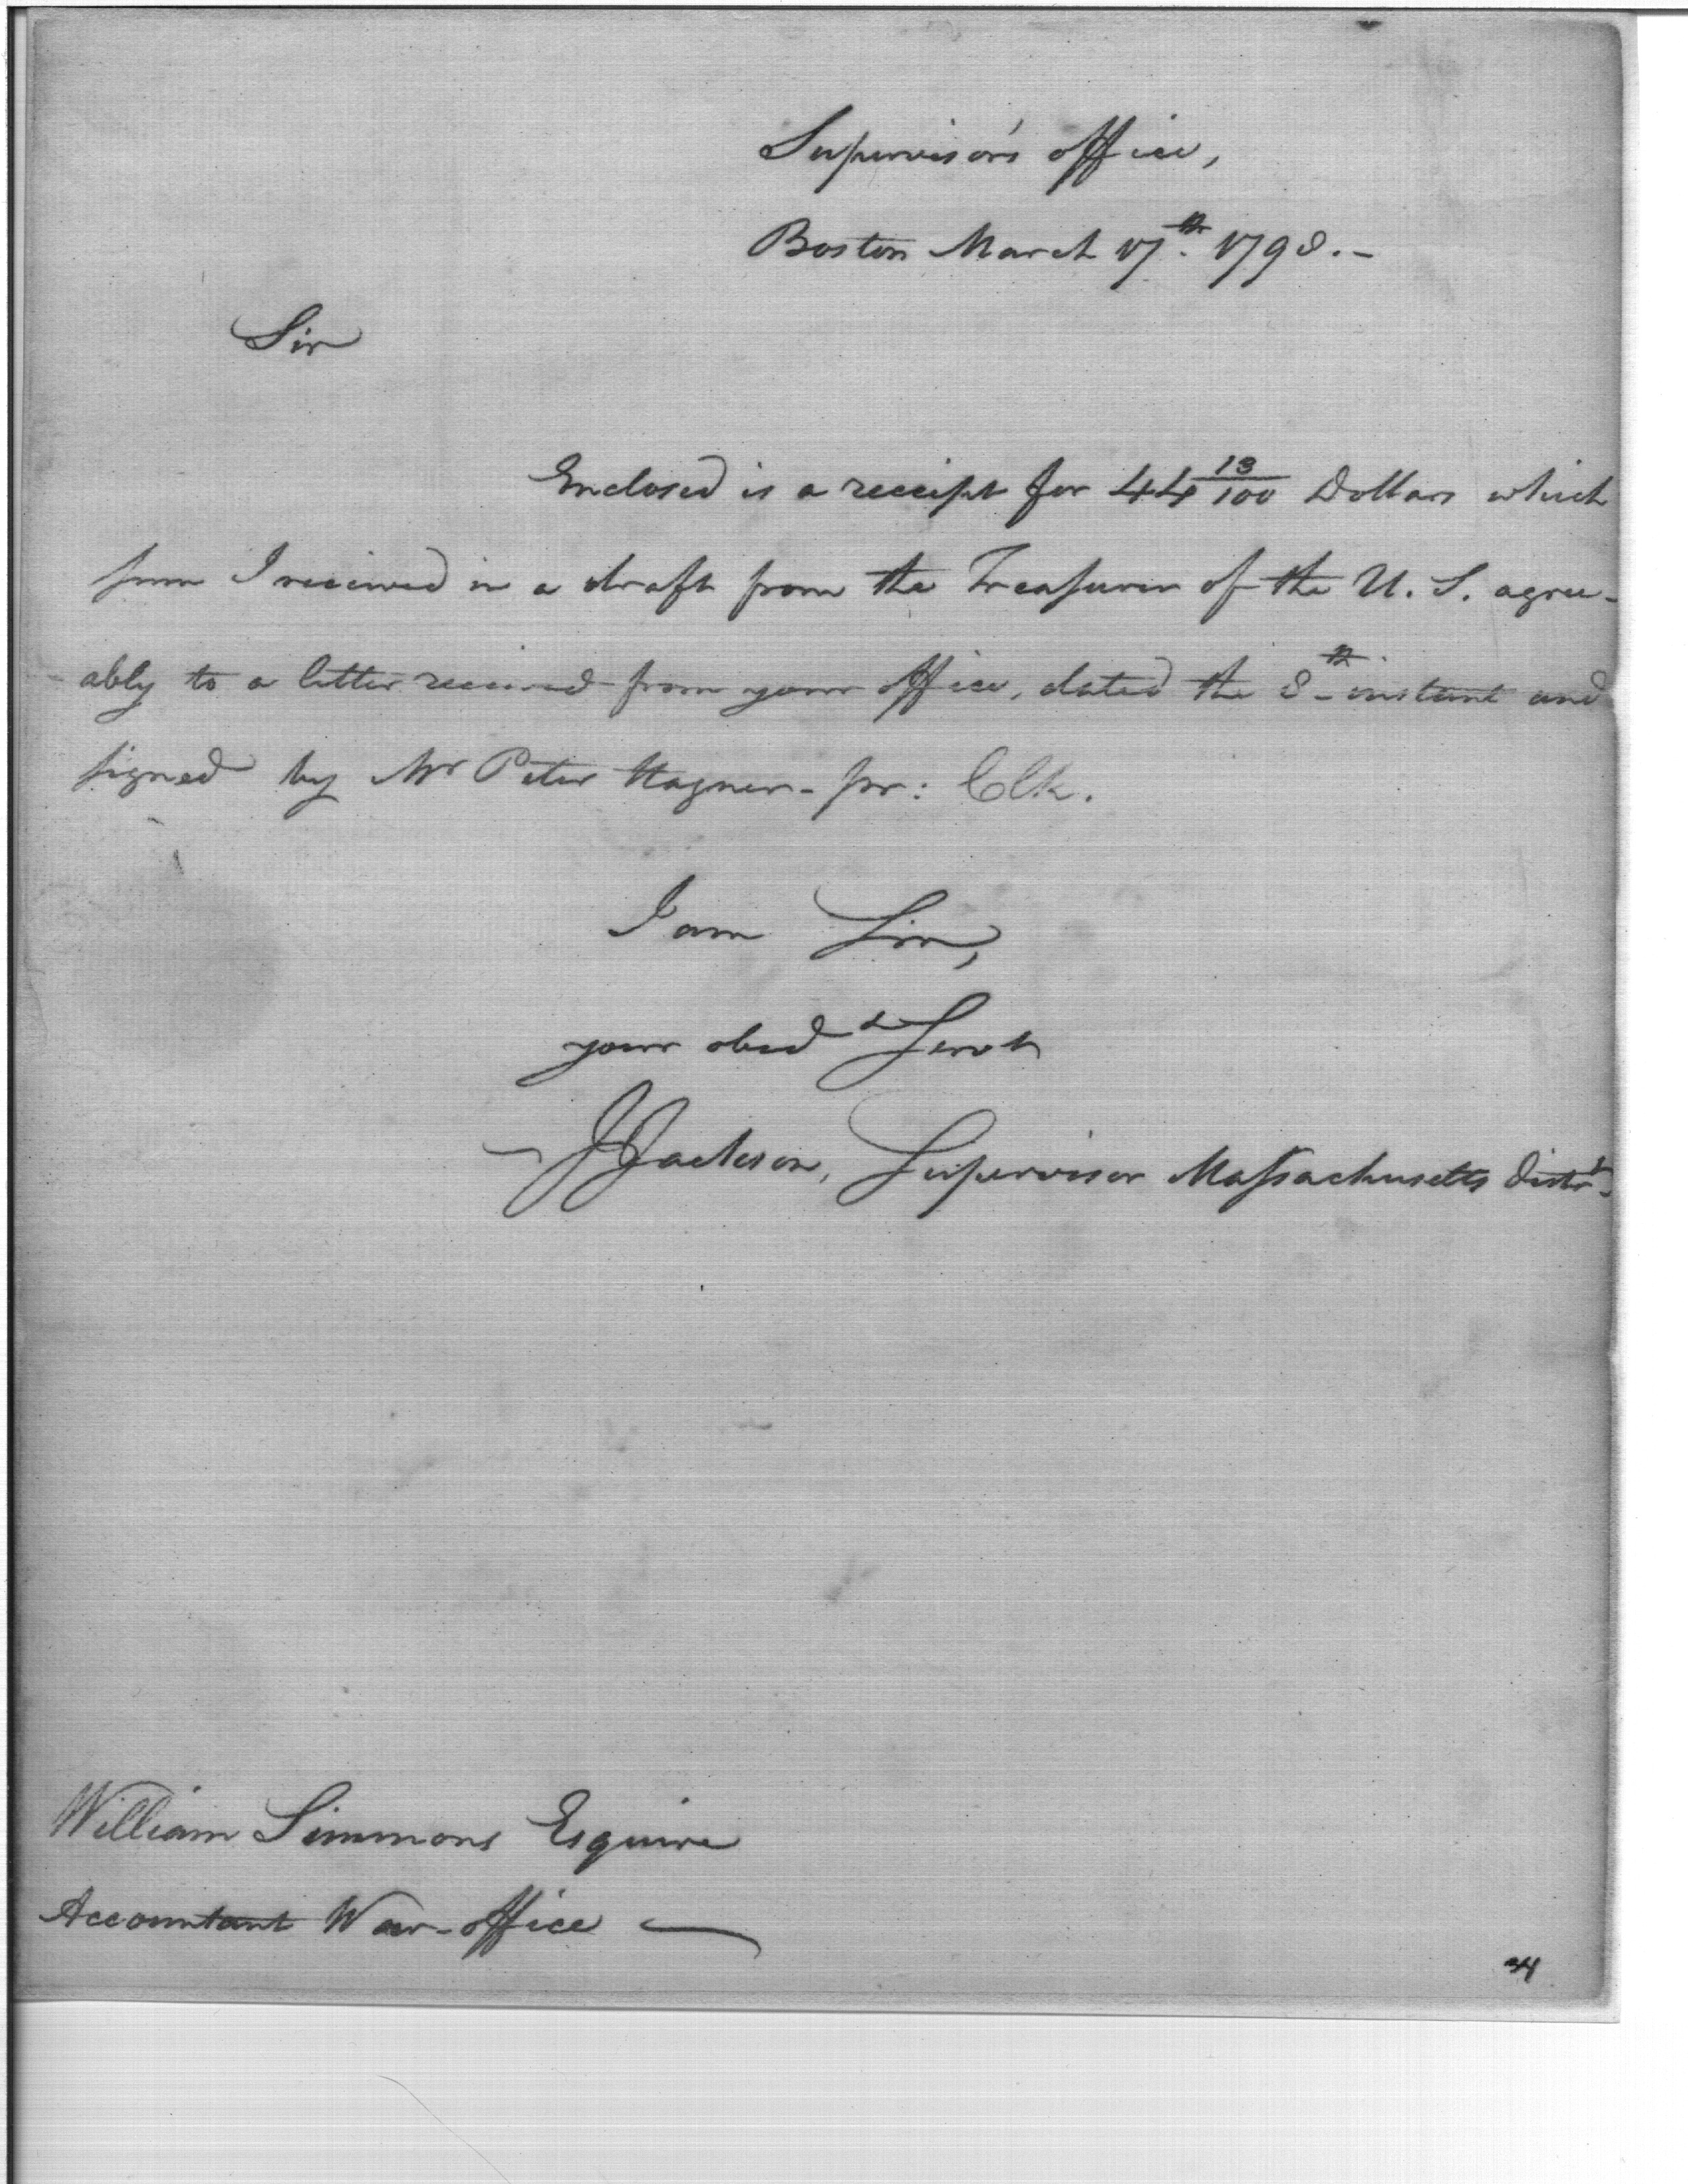 Supervisor's office,
Boston March 17th. 1798.-
Sir
Enclosed is a receipt for 44 13/100 Dollars which
sum I received in a draft from the Treasurer of the U. S. agree-
ably to a letter received from your office, dated the 8th instant and
signed by Mr Peter Hagner - pr: Clk.
I am Sir,
your obedt Servt
J Jackson, Supervisor Massachusetts Distrt.
William Simmons Esquire
Accountant War-office
34